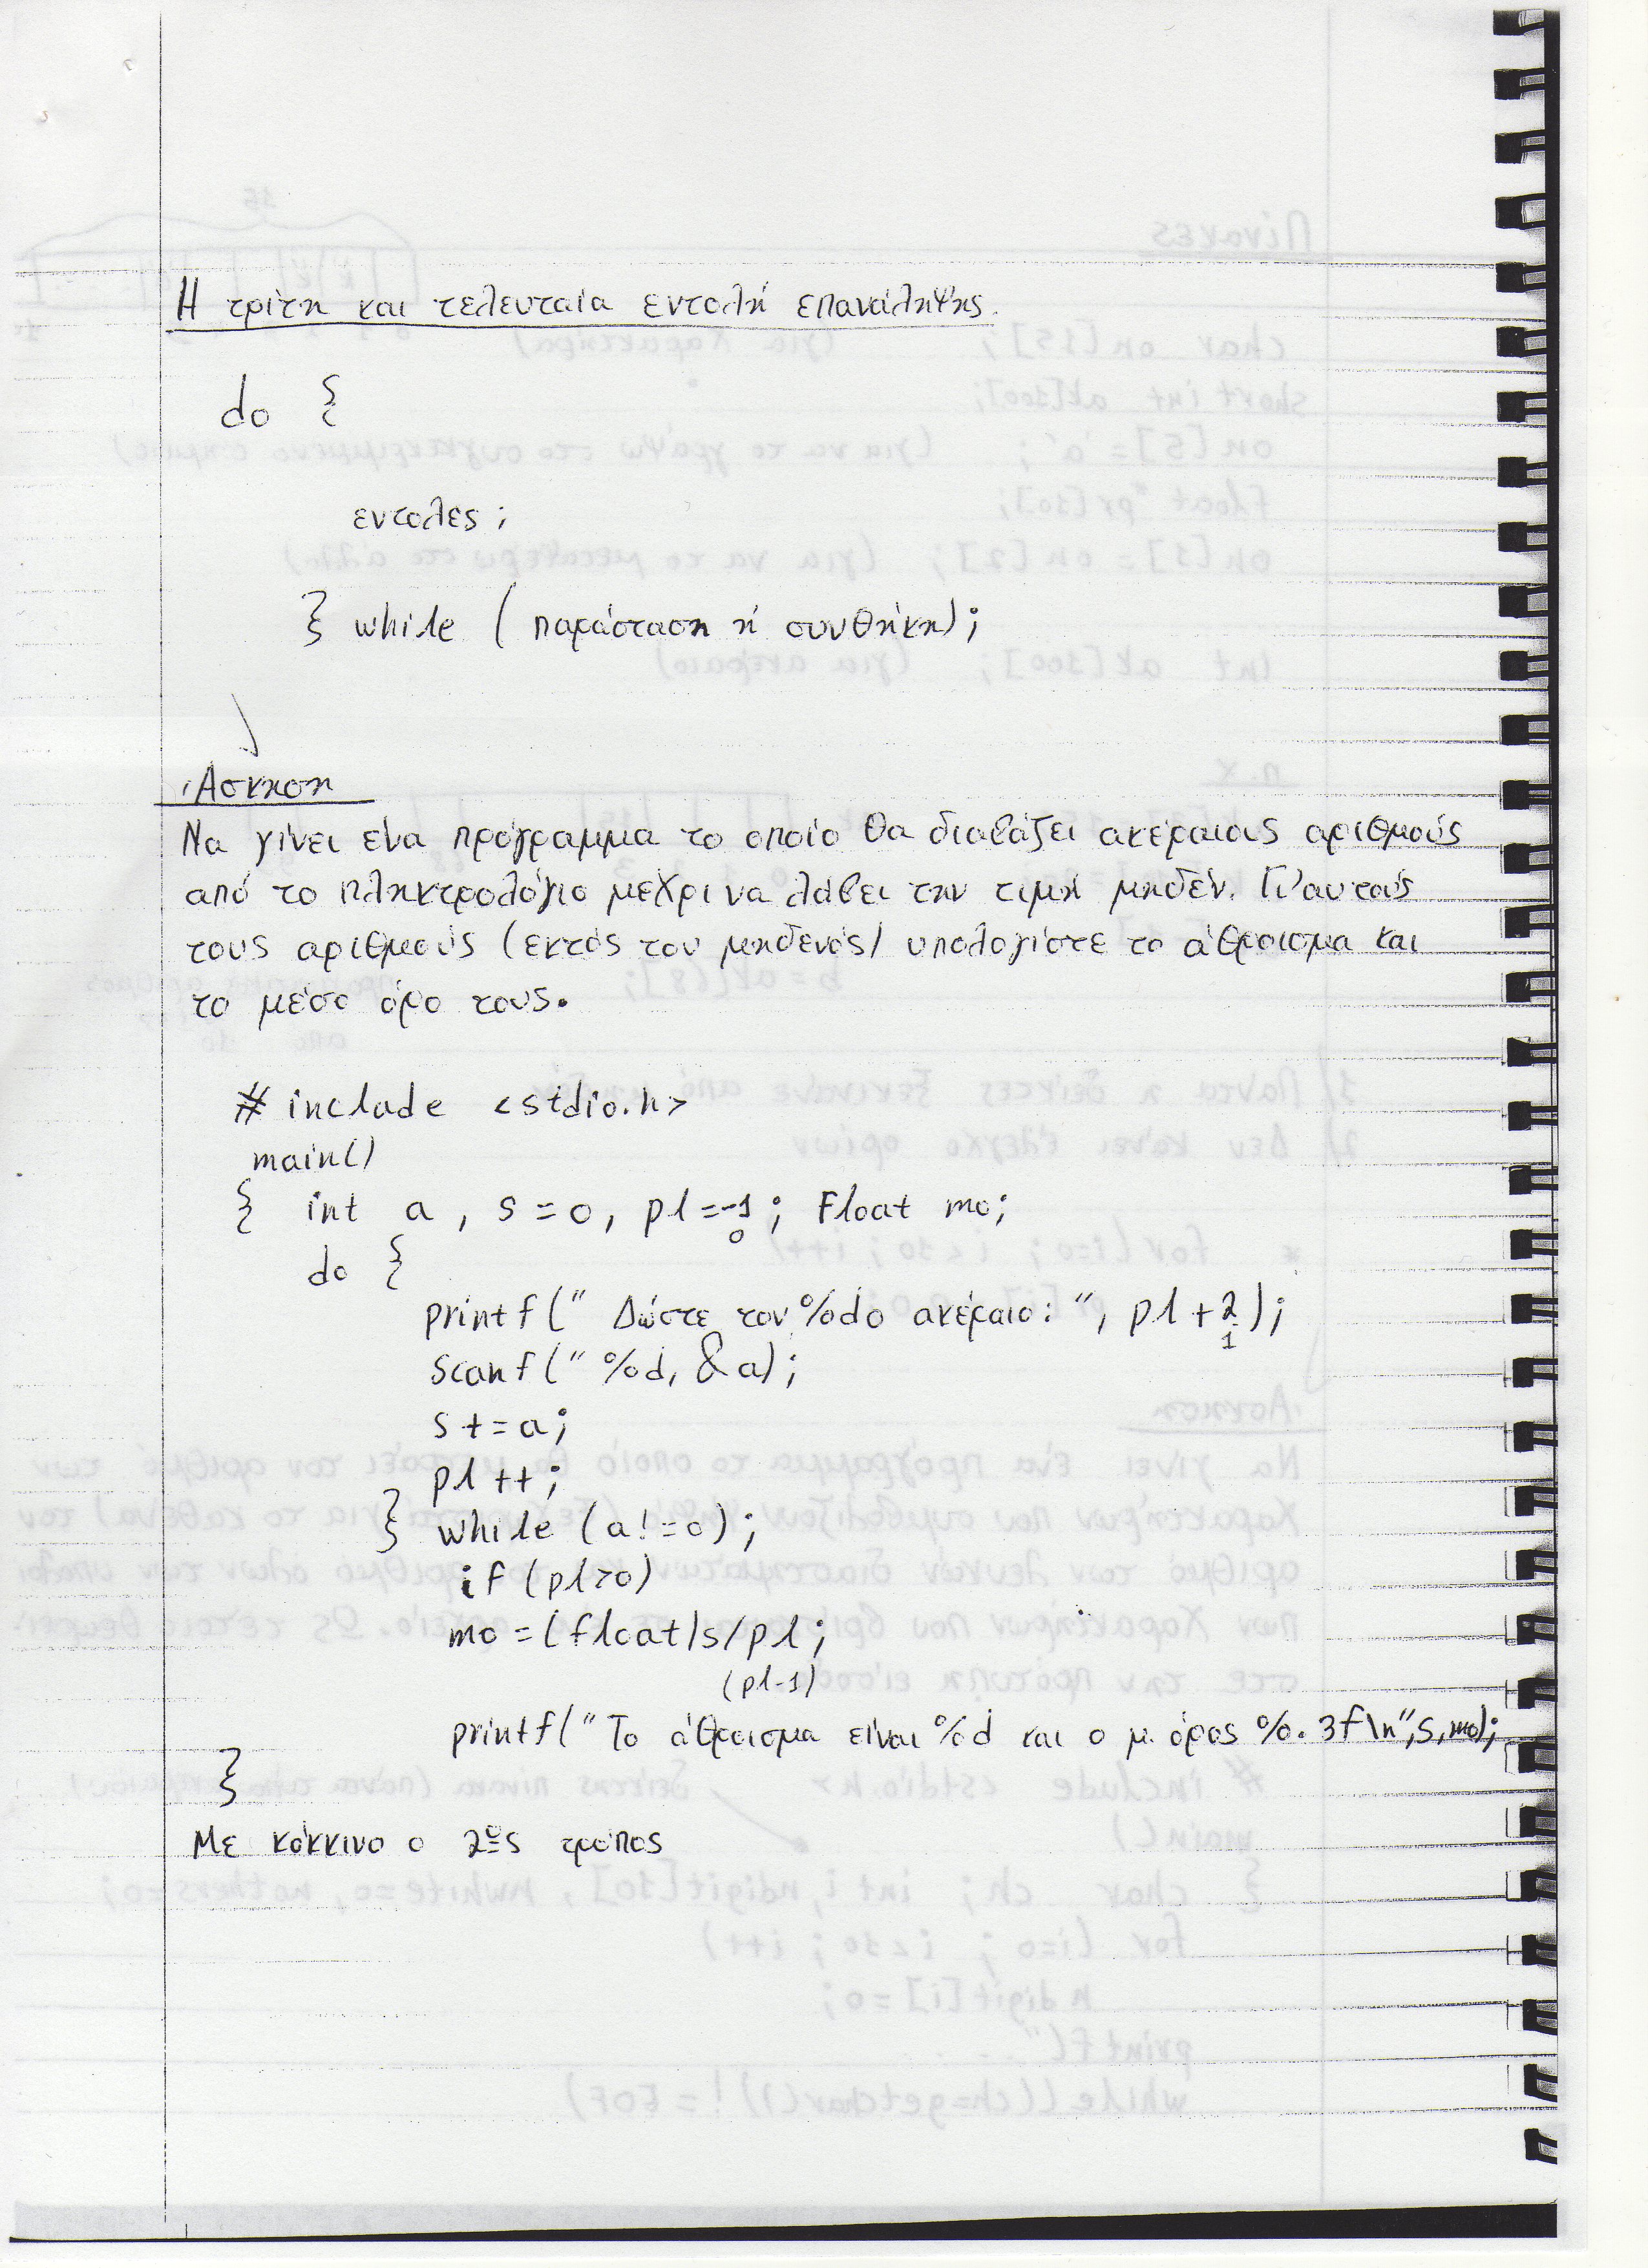 Η τρίτη και τελευταία εντολή επανάληψης.
do {
εντολες;
} while ( παράσταση ή συνθήκη);
Άσκηση
Να γίνει ένα πρόγραμμα το οποίο θα διαβάζει ακέραιους αριθμούς
από το πληκτρολόγιο μέχρι να λάβει την τιμή μηδέν. Γι'αυτούς
τους αριθμούς (εκτός του μηδενός) υπολογίστε το άθροισμα και
το μέσο όρο τους.
# include <stdio.h>
main()
{ int a , s = 0, pl = -1 ; Float mo;
0
do {
printf(" Δώστε τον %dο ακέραιο: ", pl + 2 );
1
scanf(" %d, &a);
s += a;
pl ++;
} while (a! = 0);
if (pl>0)
mo = (float)s/pl;
(pl-1)
printf(" Το άθροισμα είναι %d και ο μ. όρος %. 3f\n",s, mo);
}
Με κόκκινο ο 2ος τρόπος